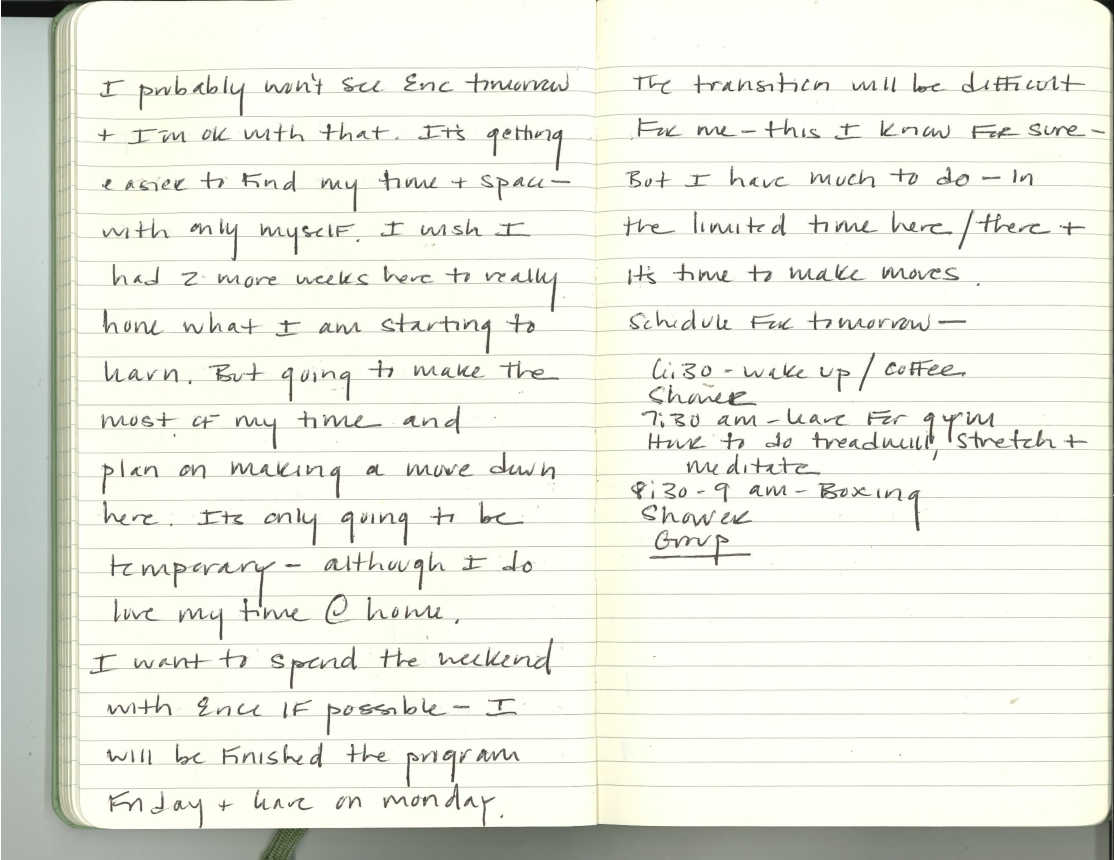 I probably won't see Eric tomorrow
+ I'm ok with that. It's getting
easier to find my time + space -
with only myself. I wish I
had 2 more weeks here to really
hone what I am starting to
learn. But going to make the
most of my time and
plan on making a move down
here. Its only going to be
temporary - although I do
love my time @ home.
I want to spend the weekend
with Erice IF possible - I
will be finished the program
Friday + leave on monday.
The transition will be difficult
For me - this I know For sure -
But I have much to do - In
the limited time here / there +
It's time to make moves.
Schedule For tomorrow -
6:30 - wake up / coffee
Shower
7:30 am - leave For gym
Have to do treadmill, stretch +
meditate
8:30 - 9 am - Boxing
Shower
Group